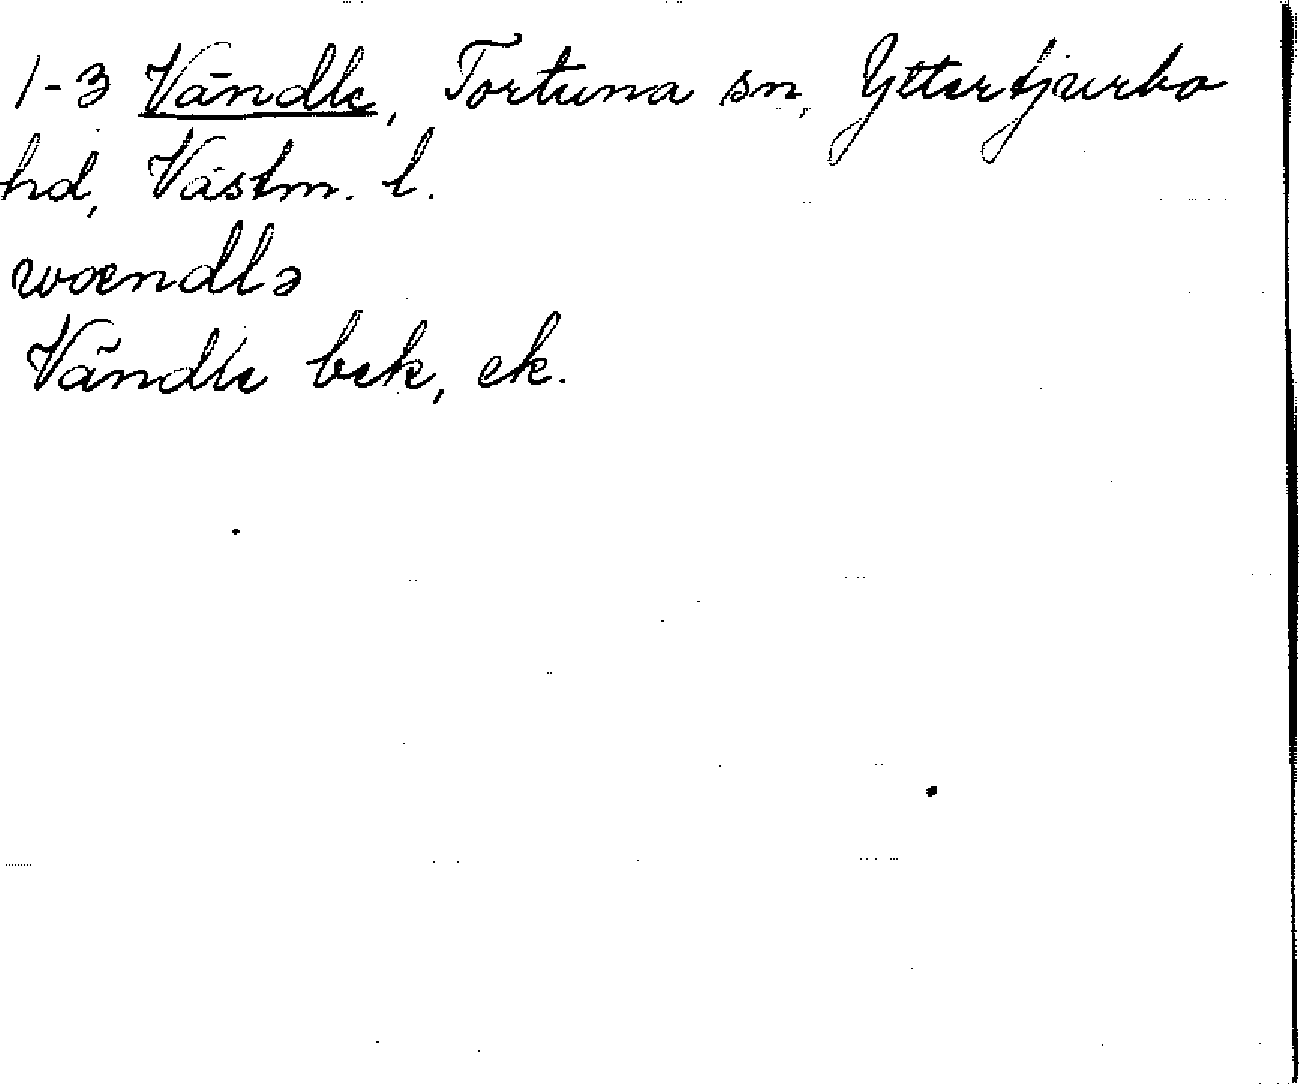 1-3 Vändle, Tortuna sn, Yttertjurbo
hd, Västm. l.
wændlə
Vändle bek, ek.